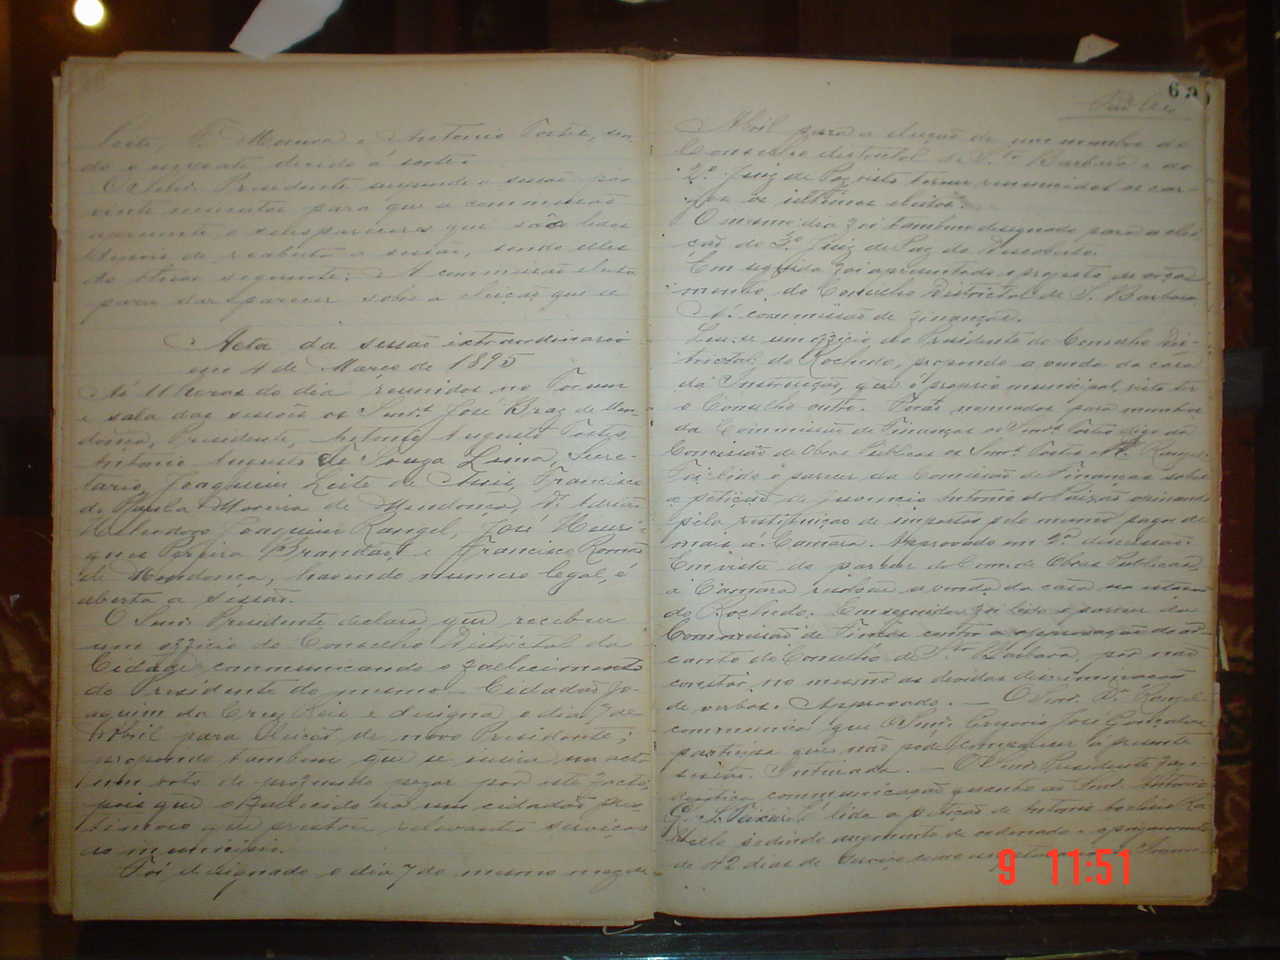 Leite, F. Moreira e Antonio Fortes, sen-
do o
O Snr. Presidente suspende a sessão por
vinte minutos para que a commissão
apresente o seus pareceres que são lidos
depois de reaberta a sessão, sendo elles
do theor seguinte: A commissão eleita
para dar parecer sobre a eleição que se
Acta da sessão extraordinaria
em 4 de Março de 1895
Ás 11 horas do dia reunidos no Forum
e sala das sessões os Snrs. José Braz de Men-
donça, Presidente, Antonio Augusto Fortes,
Antonio Augusto de Souza Lima, Secre-
tario, Joaquim Leite de Assis, Francisco
de Paula Moreira de Mendonça, Dr. Adrião
Heliodoro Joaquim Rangel, José Henri-
ques Pereira Brandão, e Francisco Romão
de Mendonca, havendo numero legal, é
aberta a sessão.
O Snr. Presidente declara que recebeu
um officio do Conselho Districtal da
Cidade communicando o fallecimento
do Presidente do mesmo - Cidadão Jo-
aquim da Cruz Reis e designa o dia 7 de
Abril para eleição de novo Presidente;
propondo tambem que se insira na acta
um voto de profundo pezar por este facto,
pois que o fallecido era um cidadão
que prestou relevantes serviços
ao municipio.
Foi designado o dia 7 do mesmo mez de
69
Abril para a eleição de um membro do
Conselho districtal de Sta. Barbara e do
2º Juiz de Paz visto terem renunciado os car-
gos os ultimos eleitos.
O mesmo dia foi tambem designado para a elei-
ção do 3º Juiz de Paz do Descoberto.
Em seguida foi apresentado o projecto de orça-
mento do Conselho Districtal de S. Barbara
Á commissão de finanças.
Leu-se um officio do Presidente do Conselho Dis-
trictal do Rochedo, propondo a venda da casa
da Instrucção, que é proprio municipal, visto ter
o Conselho outro. Foram nomeados para membros
da Commissão de Finanças os Snrs. Fortes digo da
Comissão de Obras Publicas os Snrs. Fortes e Dr. Rangel.
Foi lido o parecer da Comissão de Finanças sobre
a petição de Juvencio Antonio da opinando
pela restituição de impostos pelo mesmo pagos de
mais á Camara. Approvado em 2ª discussão.
Em vista do parecer da Comm. de Obras Publicas,
a Camara resolveu a venda da casa na estação
do Rochedo. Em seguida foi lido o parecer da
Commissão de Finças contra a approvação do or-
çamto do Conselho de Sta Barbara, por não
constar no mesmo as devidas discriminação
de verbas. Approvado. — O Snr. Dr. Rangel
communica que o Snr. Gregorio José Gonçalves
participa que não póde comparecer á presente
sessão. Inteirada. — O Snr. Presidente faz i-
dentica communicação quanto ao Snr. Antonio
G. S. É lida a petição de Antonio
pedindo augmento de ordenado e o pagamento
de 42 dias de serviço como
9 11:51